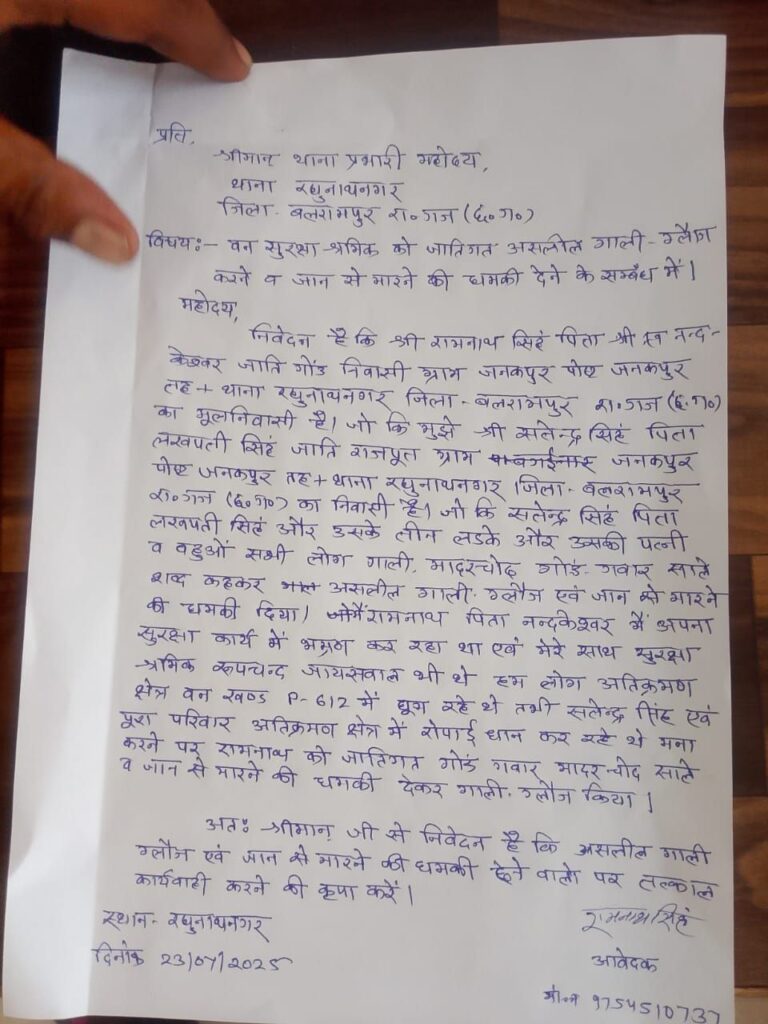 प्रति,
श्रीमान् थाना प्रभारी महोदय,
थाना रघुनाथनगर
जिला- बलरामपुर रा०गंज (छ०ग०)
विषय:- वन सुरक्षा श्रमिक को जातिगत असलील गाली-ग्लौज
करने व जान से मारने की धमकी देने के सम्बंध में।
महोदय,
निवेदन है कि श्री रामनाथ सिहं पिता श्री स्व नन्द-
केश्वर जाति गोंड निवासी ग्राम जनकपुर पोस्ट जनकपुर
तह+ थाना रघुनाथनगर जिला- बलरामपुर रा०गंज (छ०ग०)
का मूलनिवासी है। जो कि मुझे श्री सतेन्द्र सिहं पिता
लखपती सिहं जाति राजपूत ग्राम जनकपुर
पोस्ट जनकपुर तह+थाना रघुनाथनगर जिला- बलरामपुर
रा०गंज (छ०ग०) का निवासी है। जो कि सतेन्द्र सिहं पिता
लखपती सिहं और उसके तीन लडके और उसकी पत्नी
व बहुओं सभी लोग गाली, मादरचोद गोंड गवार साले
शब्द कहकर असलील गाली-ग्लौज एवं जान से मारने
की धमकी दिया। रामनाथ पिता नन्दकेश्वर मैं अपना
सुरक्षा कार्य में भम्रण कर रहा था एवं मेरे साथ सुरक्षा
श्रमिक रूपचन्द जायसवाल भी थे हम लोग अतिक्रमण
क्षेत्र वन खण्ड P-612 में घूम रहे थे तभी सतेन्द्र सिंह एवं
पूरा परिवार अतिक्रमण क्षेत्र में रोपाई धान कर रहे थे मना
करने पर रामनाथ को जातिगत गोंड गवार मादरचोद साले
व जान से मारने की धमकी देकर गाली-ग्लौज किया।
अतः श्रीमान् जी से निवेदन है कि असलील गाली
ग्लौज एवं जान से मारने की धमकी देने वालो पर तत्काल
कार्यवाही करने की कृपा करें।
स्थान- रघुनाथनगर
रामनाथ सिहं
दिनांक 23/07/2025
आवेदक
मो०न० 9754510737